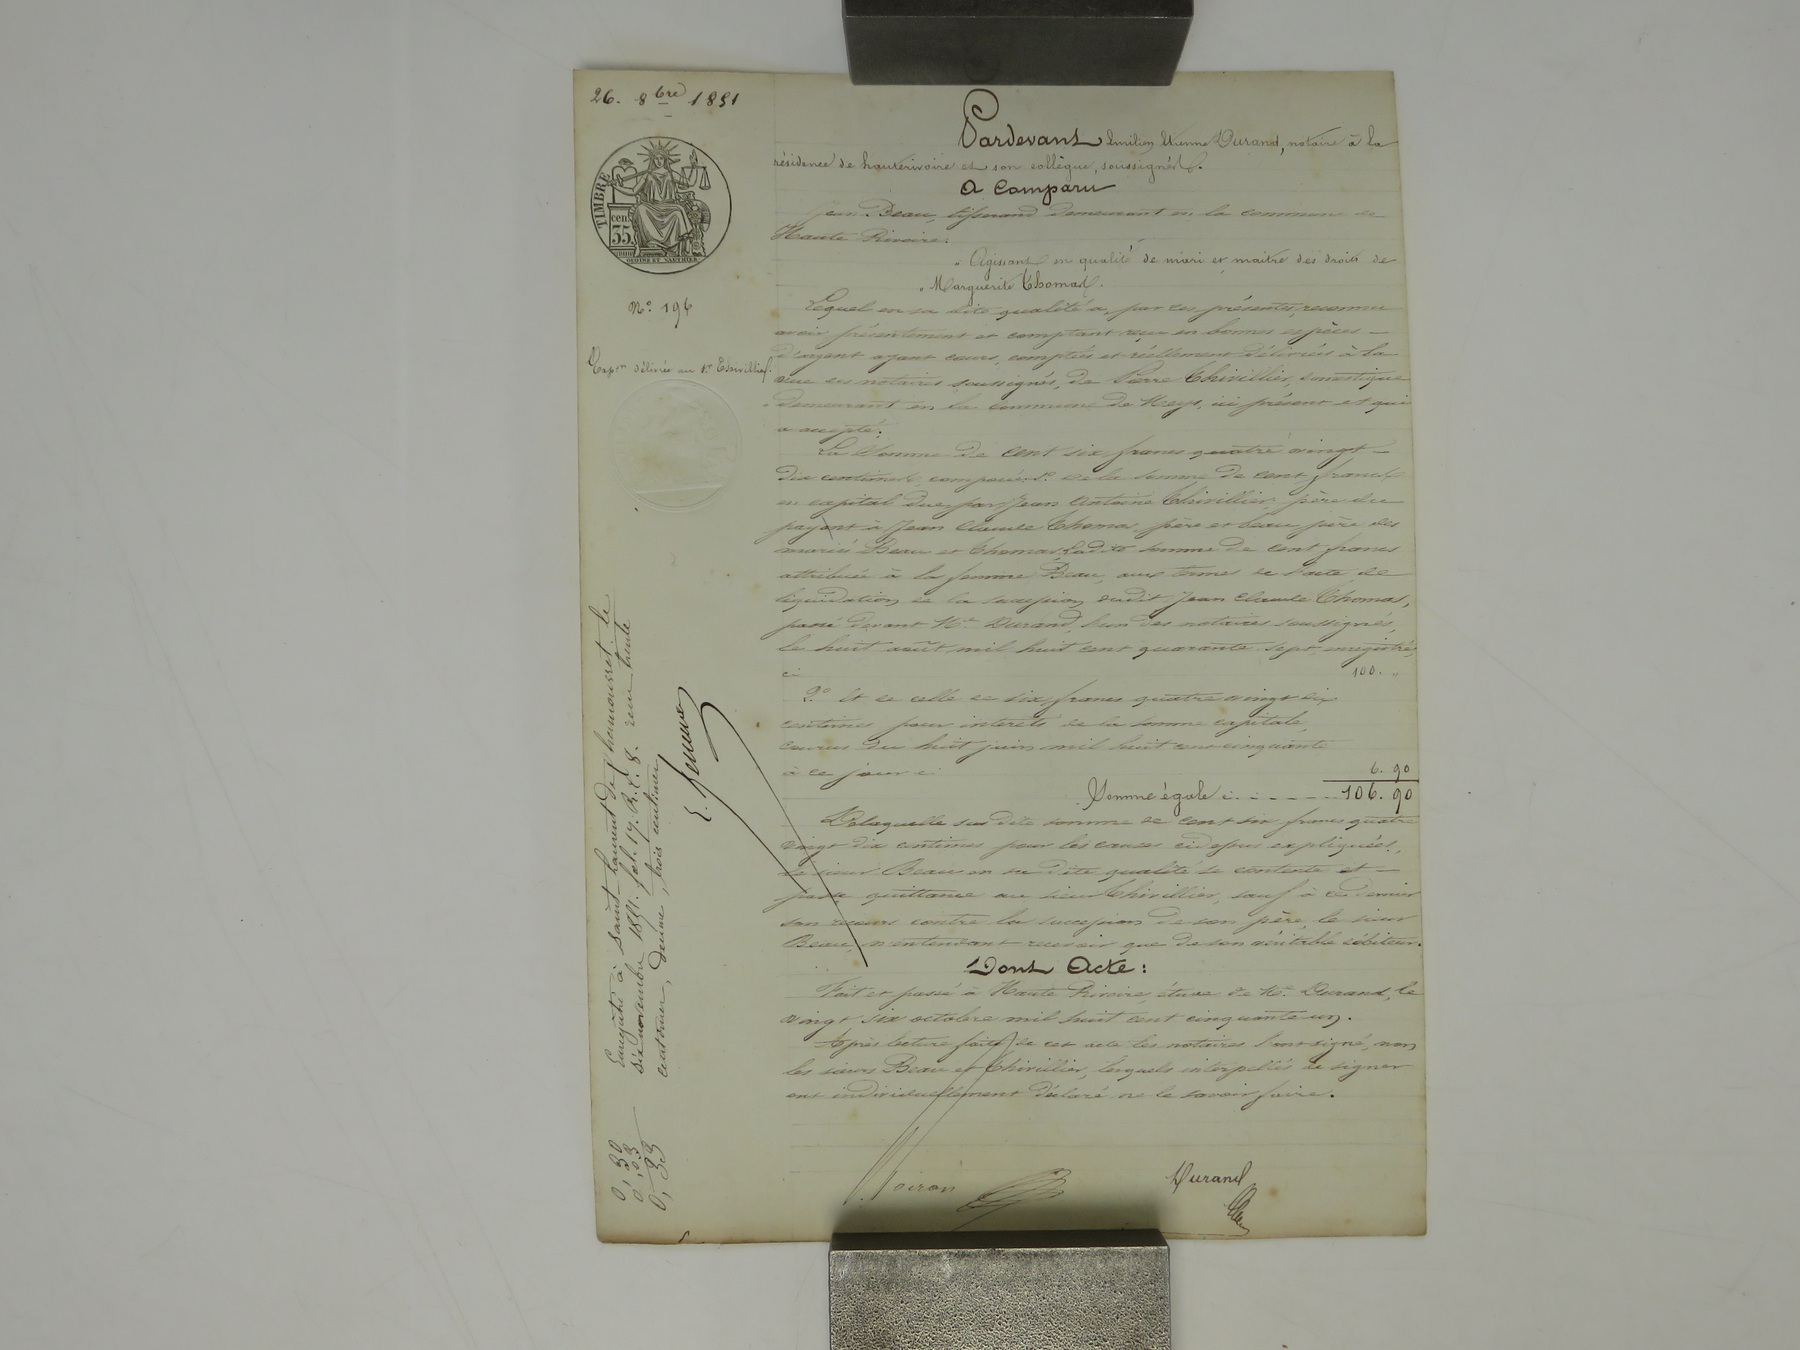 26. 8bre 1851
TIMBRE
cen.
35.
N° 196
Expon délivrée au Sr Thivillier.
Pardevant Emilien Etienne Durand, notaire à la
résidence de hauterivoire et son collègue, soussignés.
A Comparu
Jean Beau, tisserand demeurant en la commune de
Haute Rivoire.
Agissant en qualité de mari et maître des droits de
Marguerite Thomas.
Lequel en sa dite qualité a, par ces présentes, reconnu
avoir présentement et comptant reçu en bonnes espèces
d'argent ayant cours, comptées et réellement délivrées à la
vue des notaires soussignés, de Pierre Thivillier, domestique
demeurant en la commune de Meys, ici présent et qui
a accepté;
La somme de cent six francs quatre vingt
dix centimes, composée: 1° de la somme de cent francs
en capital due par Jean Antoine Thivillier, père du
payant à Jean Claude Thomas, père et beau père des
mariés Beau et Thomas, ladite somme de cent francs
attribuée à la femme Beau, aux termes de l'acte de
liquidation de la succession dudit Jean Claude Thomas,
passé devant Me Durand, l'un des notaires soussignés,
le huit août mil huit cent quarante sept enregistré,
ci 100. "
2° Et de celle de six francs quatre vingt dix
centimes pour intérêts de la somme capitale
courus du huit juin mil huit cent cinquante
à ce jour ci 6. 90
Somme égale ci. 106. 90
De laquelle sus dite somme de cent six francs quatre
vingt dix centimes pour les causes ci dessus expliquées,
le sieur Beau en sa dite qualité se contente et
passe quittance au sieur Thivillier, sauf à ce dernier
son recours contre la succession de son père, le sieur
Beau, n'entendant recevoir que de son véritable débiteur.
Dont Acte:
Fait et passé à Haute Rivoire, étude de Me Durand, le
vingt six octobre mil huit cent cinquante un.
Après lecture faite de cet acte les notaires l'ont signé, non
les sieurs Beau et Thivillier, lesquels interpellés de signer
ont individuellement déclaré ne le savoir faire.
Durand
Enregistré à Saint Laurent de Chamousset le
six novembre 1851. fol. 17. R. C. 8. reçu trente
centimes, dixième, trois centimes
0,30
0,03
0,33